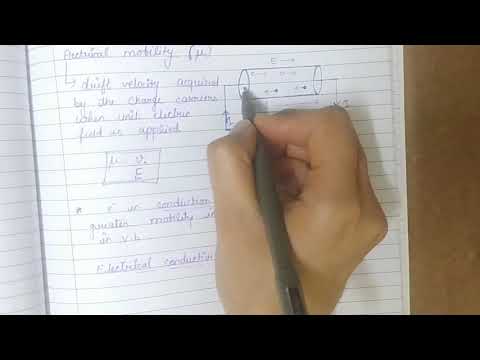 Electrical mobility (μ)
↳ drift velocity acquired
by the charge carriers
when unit electric
field is applied
μ v.
E
* e⁻ in conduction
greater mobility
in V.b.
Electrical conductivi
E →
I